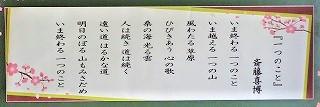 『一つのこと』
斎藤喜博
いま終わる一つのこと
いま越える一つの山
風わたる草原
ひびきあう心の歌
桑の海光る雲
人は続き道は続く
遠い道はるかな道
明日のぼる山もみさだめ
いま終わる一つのこと